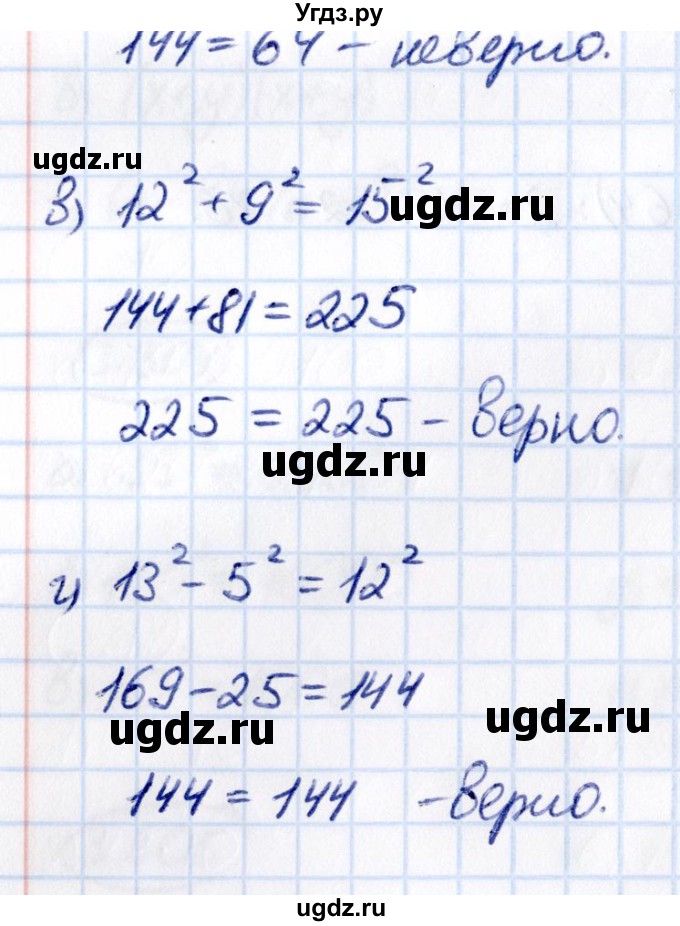 Угдз.ру
144 = 64 - неверно.
ugdz.ru
в) 12² + 9² = 15²
ugdz.ru
144 + 81 = 225
225 = 225 - верно.
ugdz.ru
г) 13² - 5² = 12²
169 - 25 = 144
ugdz.ru
ugdz.ru
144 = 144 - верно.
ugdz.ru